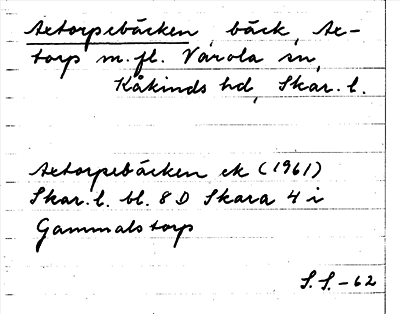 Axtorpsbäcken, bäck, Ax-
torp m. fl. Varola sn,
Kåkinds hd, Skar. l.
Axtorpsbäcken ek (1961)
Skar. l. bl. 8 D Skara 4 i
Gammalstorp
S. S. -62